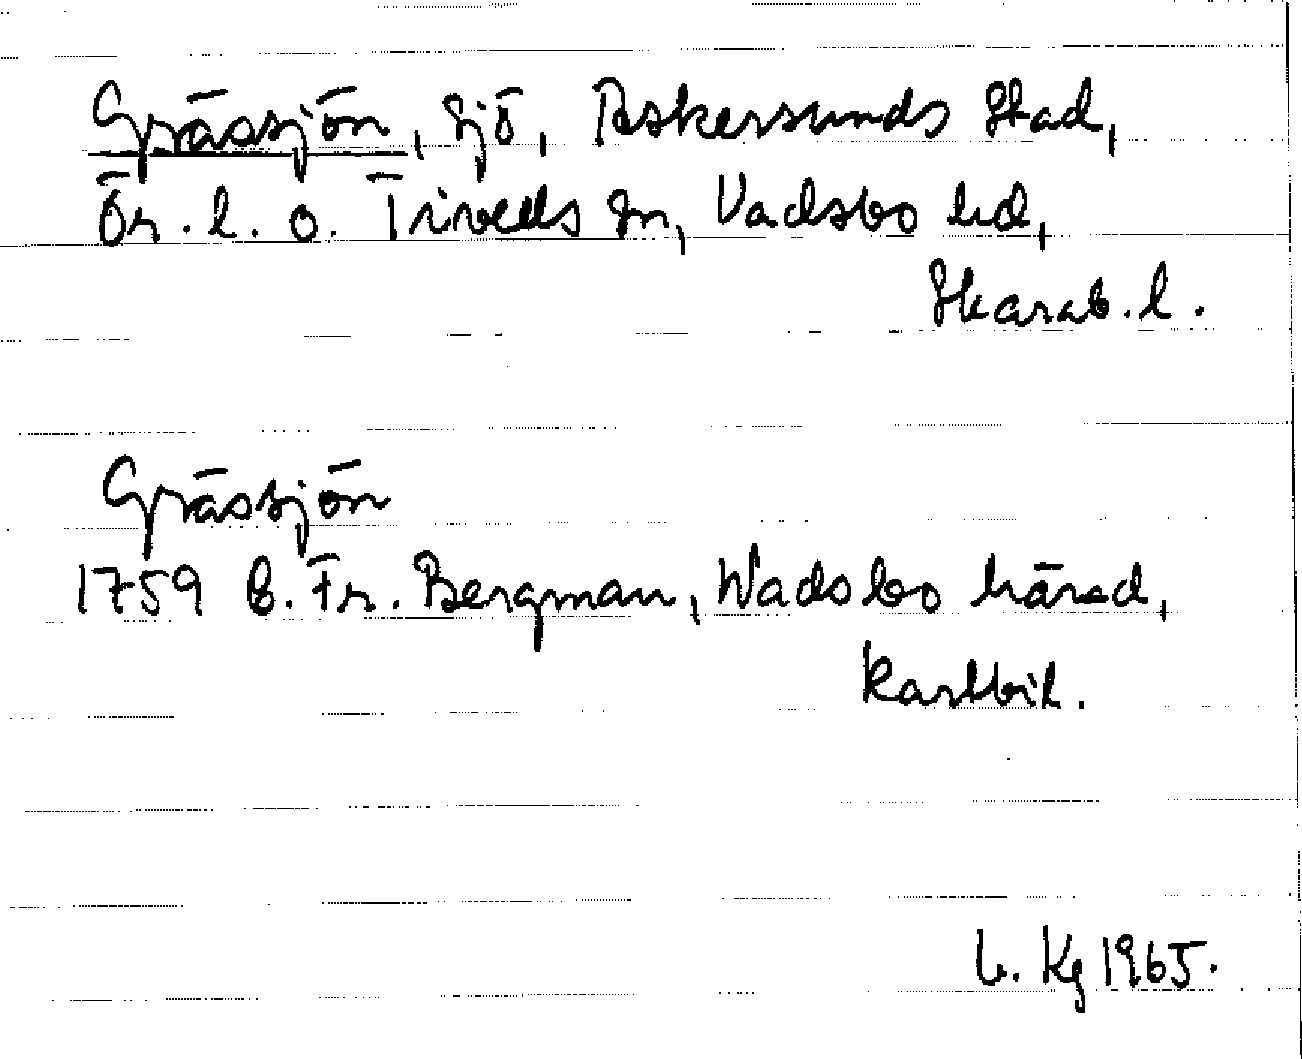 Grässjön, sjö, Askersunds stad,
Ör. l. o. Tiveds sn, Vadsbo hd,
Skarab. l.
Grässjön
1759 B. Fr. Bergman, Wadsbo härad,
kartbil.
L. Kg 1965.